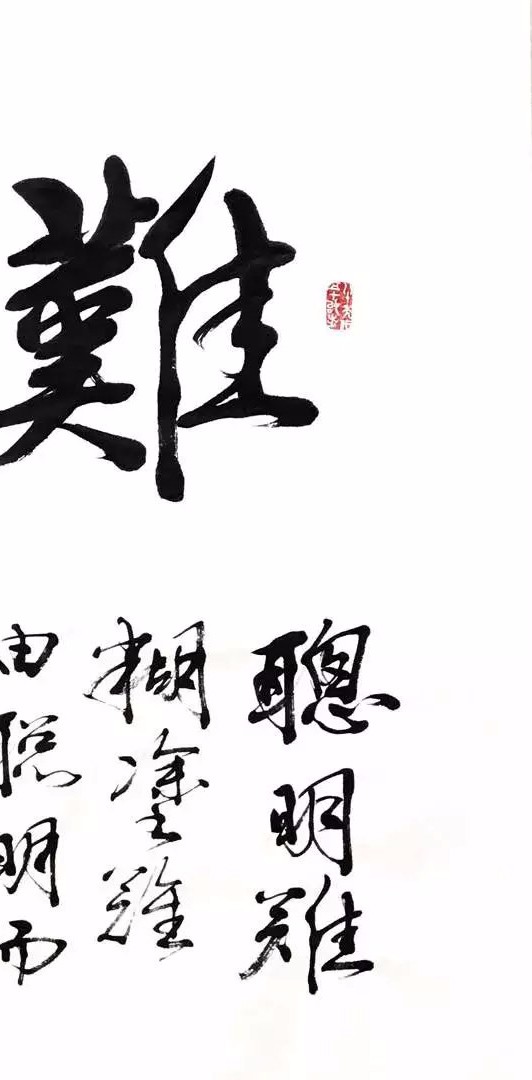 難
聰明難
糊塗難
由聰明而